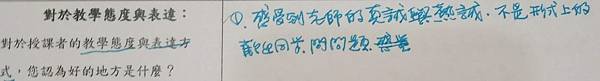 對於教學態度與表達：
對於授課者的教學態度與表達方
式，您認為好的地方是什麼？
①. 感受到老師的真誠與熱誠，不是形式上的
同學問問題.